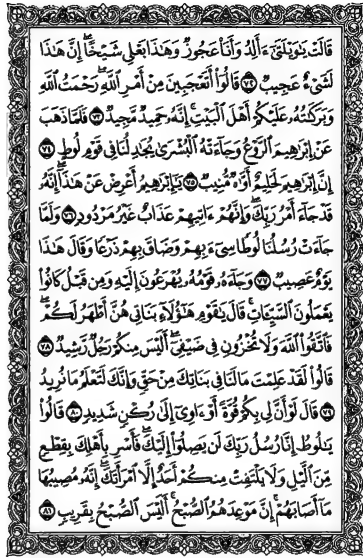 قَالَتْ يَٰوَيْلَتَىٰٓ ءَأَلِدُ وَأَنَا۠ عَجُوزٌ وَهَٰذَا بَعْلِى شَيْخًا إِنَّ هَٰذَا
لَشَىْءٌ عَجِيبٌ ٧٢ قَالُوٓا۟ أَتَعْجَبِينَ مِنْ أَمْرِ ٱللَّهِ رَحْمَتُ ٱللَّهِ
وَبَرَكَٰتُهُۥ عَلَيْكُمْ أَهْلَ ٱلْبَيْتِ إِنَّهُۥ حَمِيدٌ مَّجِيدٌ ٧٣ فَلَمَّا ذَهَبَ
عَنْ إِبْرَٰهِيمَ ٱلرَّوْعُ وَجَآءَتْهُ ٱلْبُشْرَىٰ يُجَٰدِلُنَا فِى قَوْمِ لُوطٍ ٧٤
إِنَّ إِبْرَٰهِيمَ لَحَلِيمٌ أَوَّٰهٌ مُّنِيبٌ ٧٥ يَٰٓإِبْرَٰهِيمُ أَعْرِضْ عَنْ هَٰذَآ إِنَّهُۥ
قَدْ جَآءَ أَمْرُ رَبِّكَ وَإِنَّهُمْ ءَاتِيهِمْ عَذَابٌ غَيْرُ مَرْدُودٍ ٧٦ وَلَمَّا
جَآءَتْ رُسُلُنَا لُوطًا سِىٓءَ بِهِمْ وَضَاقَ بِهِمْ ذَرْعًا وَقَالَ هَٰذَا
يَوْمٌ عَصِيبٌ ٧٧ وَجَآءَهُۥ قَوْمُهُۥ يُهْرَعُونَ إِلَيْهِ وَمِن قَبْلُ كَانُوا۟
يَعْمَلُونَ ٱلسَّيِّـَٔاتِ قَالَ يَٰقَوْمِ هَٰٓؤُلَآءِ بَنَاتِى هُنَّ أَطْهَرُ لَكُمْ
فَٱتَّقُوا۟ ٱللَّهَ وَلَا تُخْزُونِ فِى ضَيْفِىٓ أَلَيْسَ مِنكُمْ رَجُلٌ رَّشِيدٌ ٧٨
قَالُوا۟ لَقَدْ عَلِمْتَ مَا لَنَا فِى بَنَاتِكَ مِنْ حَقٍّ وَإِنَّكَ لَتَعْلَمُ مَا نُرِيدُ
٧٩ قَالَ لَوْ أَنَّ لِى بِكُمْ قُوَّةً أَوْ ءَاوِىٓ إِلَىٰ رُكْنٍ شَدِيدٍ ٨٠ قَالُوا۟
يَٰلُوطُ إِنَّا رُسُلُ رَبِّكَ لَن يَصِلُوٓا۟ إِلَيْكَ فَأَسْرِ بِأَهْلِكَ بِقِطْعٍ
مِّنَ ٱلَّيْلِ وَلَا يَلْتَفِتْ مِنكُمْ أَحَدٌ إِلَّا ٱمْرَأَتَكَ إِنَّهُۥ مُصِيبُهَا
مَآ أَصَابَهُمْ إِنَّ مَوْعِدَهُمُ ٱلصُّبْحُ أَلَيْسَ ٱلصُّبْحُ بِقَرِيبٍ ٨١